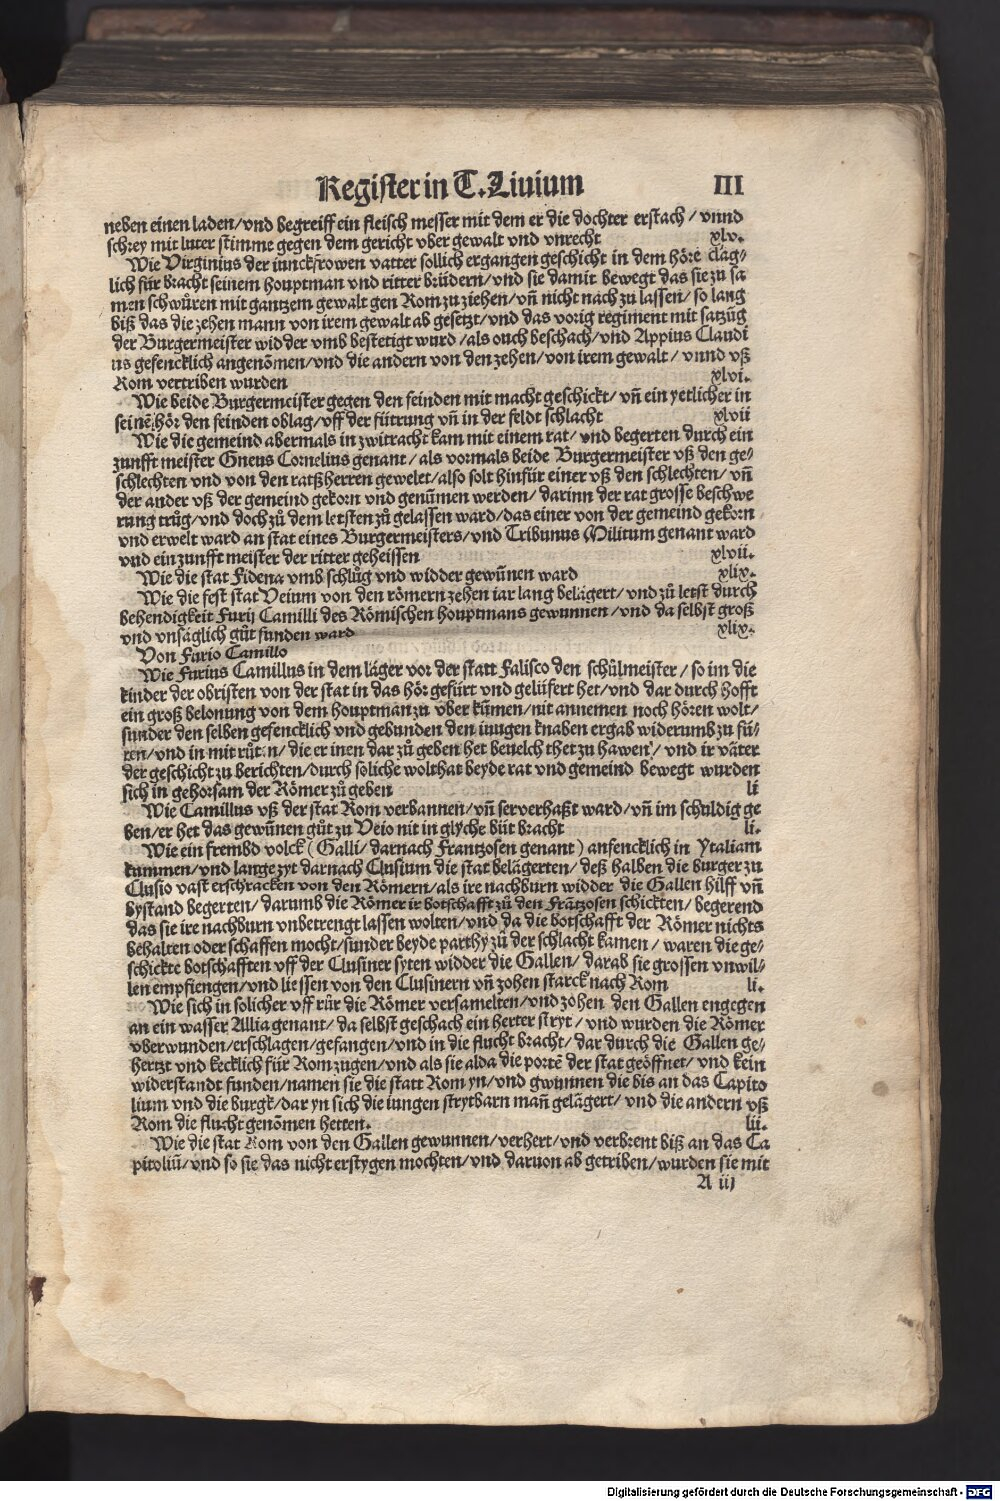 Register in T. Liuium III
neben einen laden/vnd begreiff ein fleisch messer mit dem er die dochter erstach/vnnd
schrey mit luter stimme gegen dem gericht vber gewalt vnd vnrecht xlv.
Wie Virginius der iunckfrowen vatter sollich ergangen geschicht in dem höre clag⸗
lich für bracht seinem houptman vnd ritter brüdern/vnd sie damit bewegt das sie zu sa
men schwůren mit gantzem gewalt gen Rom zu ziehen/vn̄ nicht nach zu lassen/so lang
biß das die zehen mann von irem gewalt ab gesetzt/vnd das vorig regiment mit satzūg
der Burgermeister widder vmb bestetigt wurd/als ouch beschach/vnd Appius Claudi
us gefencklich angenōmen/vnd die andern von den zehen/von irem gewalt/vnnd vß
Rom vertriben wurden xlvi.
Wie beide Burgermeister gegen den feinden mit macht geschickt/vn̄ ein yetlicher in
seinē hör den feinden oblag/vff der fütrung vn̄ in der feldt schlacht xlvii
Wie die gemeind abermals in zwitracht kam mit einem rat/vnd begerten durch ein
zunfft meister Gneus Cornelius genant/als vormals beide Burgermeister vß den ge⸗
schlechten vnd von den ratßherren gewelet/also solt hinfür einer vß den schlechten/vn̄
der ander vß der gemeind gekorn vnd genūmen werden/darinn der rat grosse beschwe
rung trůg/vnd doch zů dem letsten zů gelassen ward/das einer von der gemeind gekorn
vnd erwelt ward an stat eines Burgermeisters/vnd Tribunus Militum genant ward
vnd ein zunfft meister der ritter geheissen xlvii.
Wie die stat Fidena vmb schlůg vnd widder gewūnen ward xlix.
Wie die fest stat Veium von den römern zehen iar lang belägert/vnd zů letst durch
behendigkeit Furij Camilli des Römischen houptmans gewunnen/vnd da selbst groß
vnd vnsäglich gůt funden ward xlix.
Von Furio Camillo
Wie Furius Camillus in dem läger vor der statt Falisco den schůlmeister/so im die
kinder der obristen von der stat in das hör gefürt vnd gelüfert het/vnd dar durch hofft
ein groß belonung von dem houptman zu vber kūmen/nit annemen noch hören wolt/
sunder den selben gefencklich vnd gebunden den iungen knaben ergab widerumb zu fü⸗
ren/vnd in mit růten/die er inen dar zů geben het beuelch thet zu hawen/vnd ir väter
der geschicht zu berichten/durch soliche wolthat beyde rat vnd gemeind bewegt wurden
sich in gehorsam der Römer zů geben li
Wie Camillus vß der stat Rom verbannen/vn̄ ser verhaßt ward/vn̄ im schuldig ge
ben/er het das gewūnen gůt zu Veio nit in glyche büt bracht li.
Wie ein frembd volck (Galli/darnach Frantzosen genant) anfencklich in Ytaliam
kummen/vnd lange zyt darnach Clusium die stat belägerten/deß halben die burger zu
Clusio vast erschracken von den Römern/als ire nachburn widder die Gallen hilff vn̄
bystand begerten/darumb die Römer ir botschafft zů den Frātzosen schickten/begerend
das sie ire nachburn vnbetrengt lassen wolten/vnd da die botschafft der Römer nichts
behalten oder schaffen mocht/sunder beyde parthy zů der schlacht kamen/waren die ge⸗
schickte botschafften vff der Clusiner syten widder die Gallen/darab sie grossen vnwil⸗
len empfiengen/vnd liessen von den Clusinern vn̄ zohen starck nach Rom li.
Wie sich in solicher vff růr die Römer versamelten/vnd zohen den Gallen engegen
an ein wasser Allia genant/da selbst geschach ein herter stryt/vnd wurden die Römer
vberwunden/erschlagen/gefangen/vnd in die flucht bracht/dar durch die Gallen ge⸗
hertzt vnd kecklich für Rom zugen/vnd als sie alda die portē der stat geöffnet/vnd kein
widerstandt funden/namen sie die statt Rom yn/vnd gwunnen die bis an das Capito
lium vnd die burgk/dar yn sich die iungen strytbarn man̄ gelägert/vnd die andern vß
Rom die flucht genōmen hetten. lii.
Wie die stat Rom von den Gallen gewunnen/verhert/vnd verbrent biß an das Ca
pitoliū/vnd so sie das nicht erstygen mochten/vnd daruon ab getriben/wurden sie mit
A iij
Digitalisierung gefördert durch die Deutsche Forschungsgemeinschaft - DFG